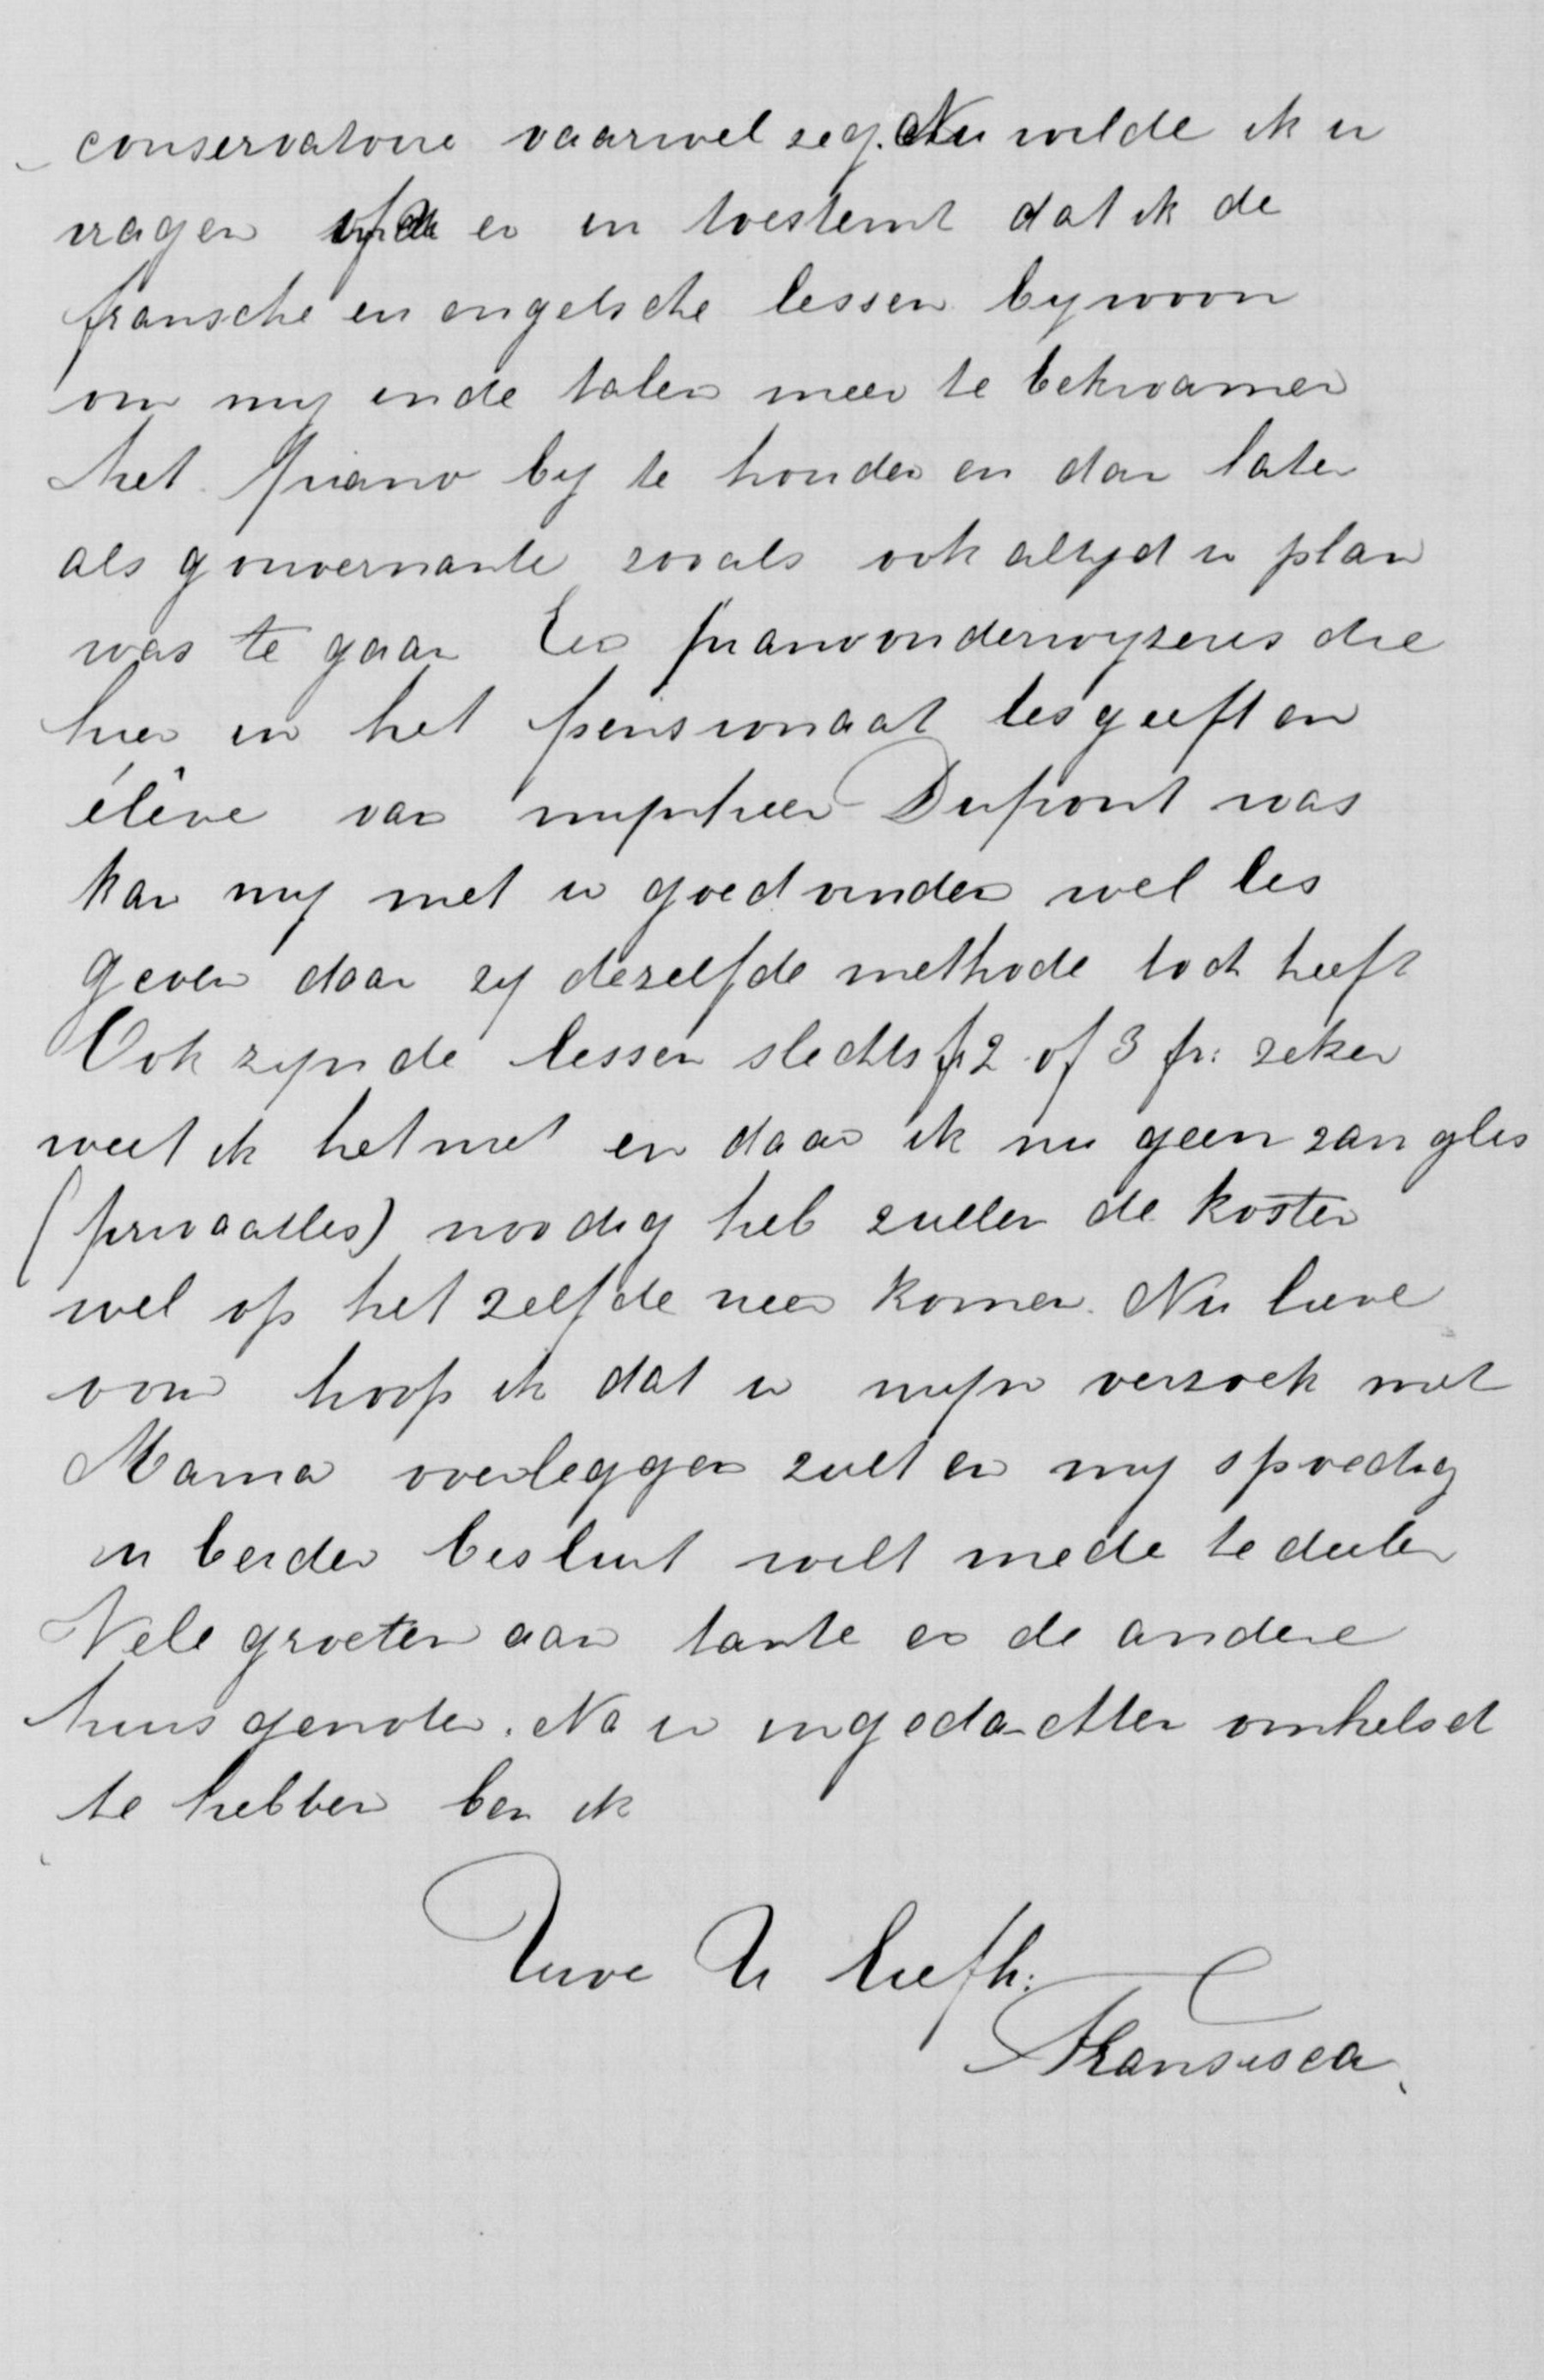 conservatoire vaarwel zeg. Nu wilde ik u
vragen of u er in toestemt dat ik de
fransche en engelsche lessen bywoon
om my in de talen meer te bekwamen
het piano by te houden en dan later
als gouvernante zooals ook altyd u plan
was te gaan Een pianoonderwyzeres die
hier in het pensionaat les geeft en
élève van mynheer Dupont was
kan my met u goedvinden wel les
geven daar zy dezelfde methode toch heeft
Ook zyn de lessen slechts fr 2 of 3 fr: zeker
weet ik het niet en daar ik nu geen zangles
(privaatles) noodig heb zullen de kosten
wel op het zelfde neer komen. Nu lieve
oom hoop ik dat u myn verzoek met
Mama overleggen zult en my spoedig
u beider besluit wilt mede te deelen
Vele groeten aan tante en de andere
huisgenoten. Na u in gedachten omhelsd
te hebben ben ik
Uwe U liefh:
Fransisca.